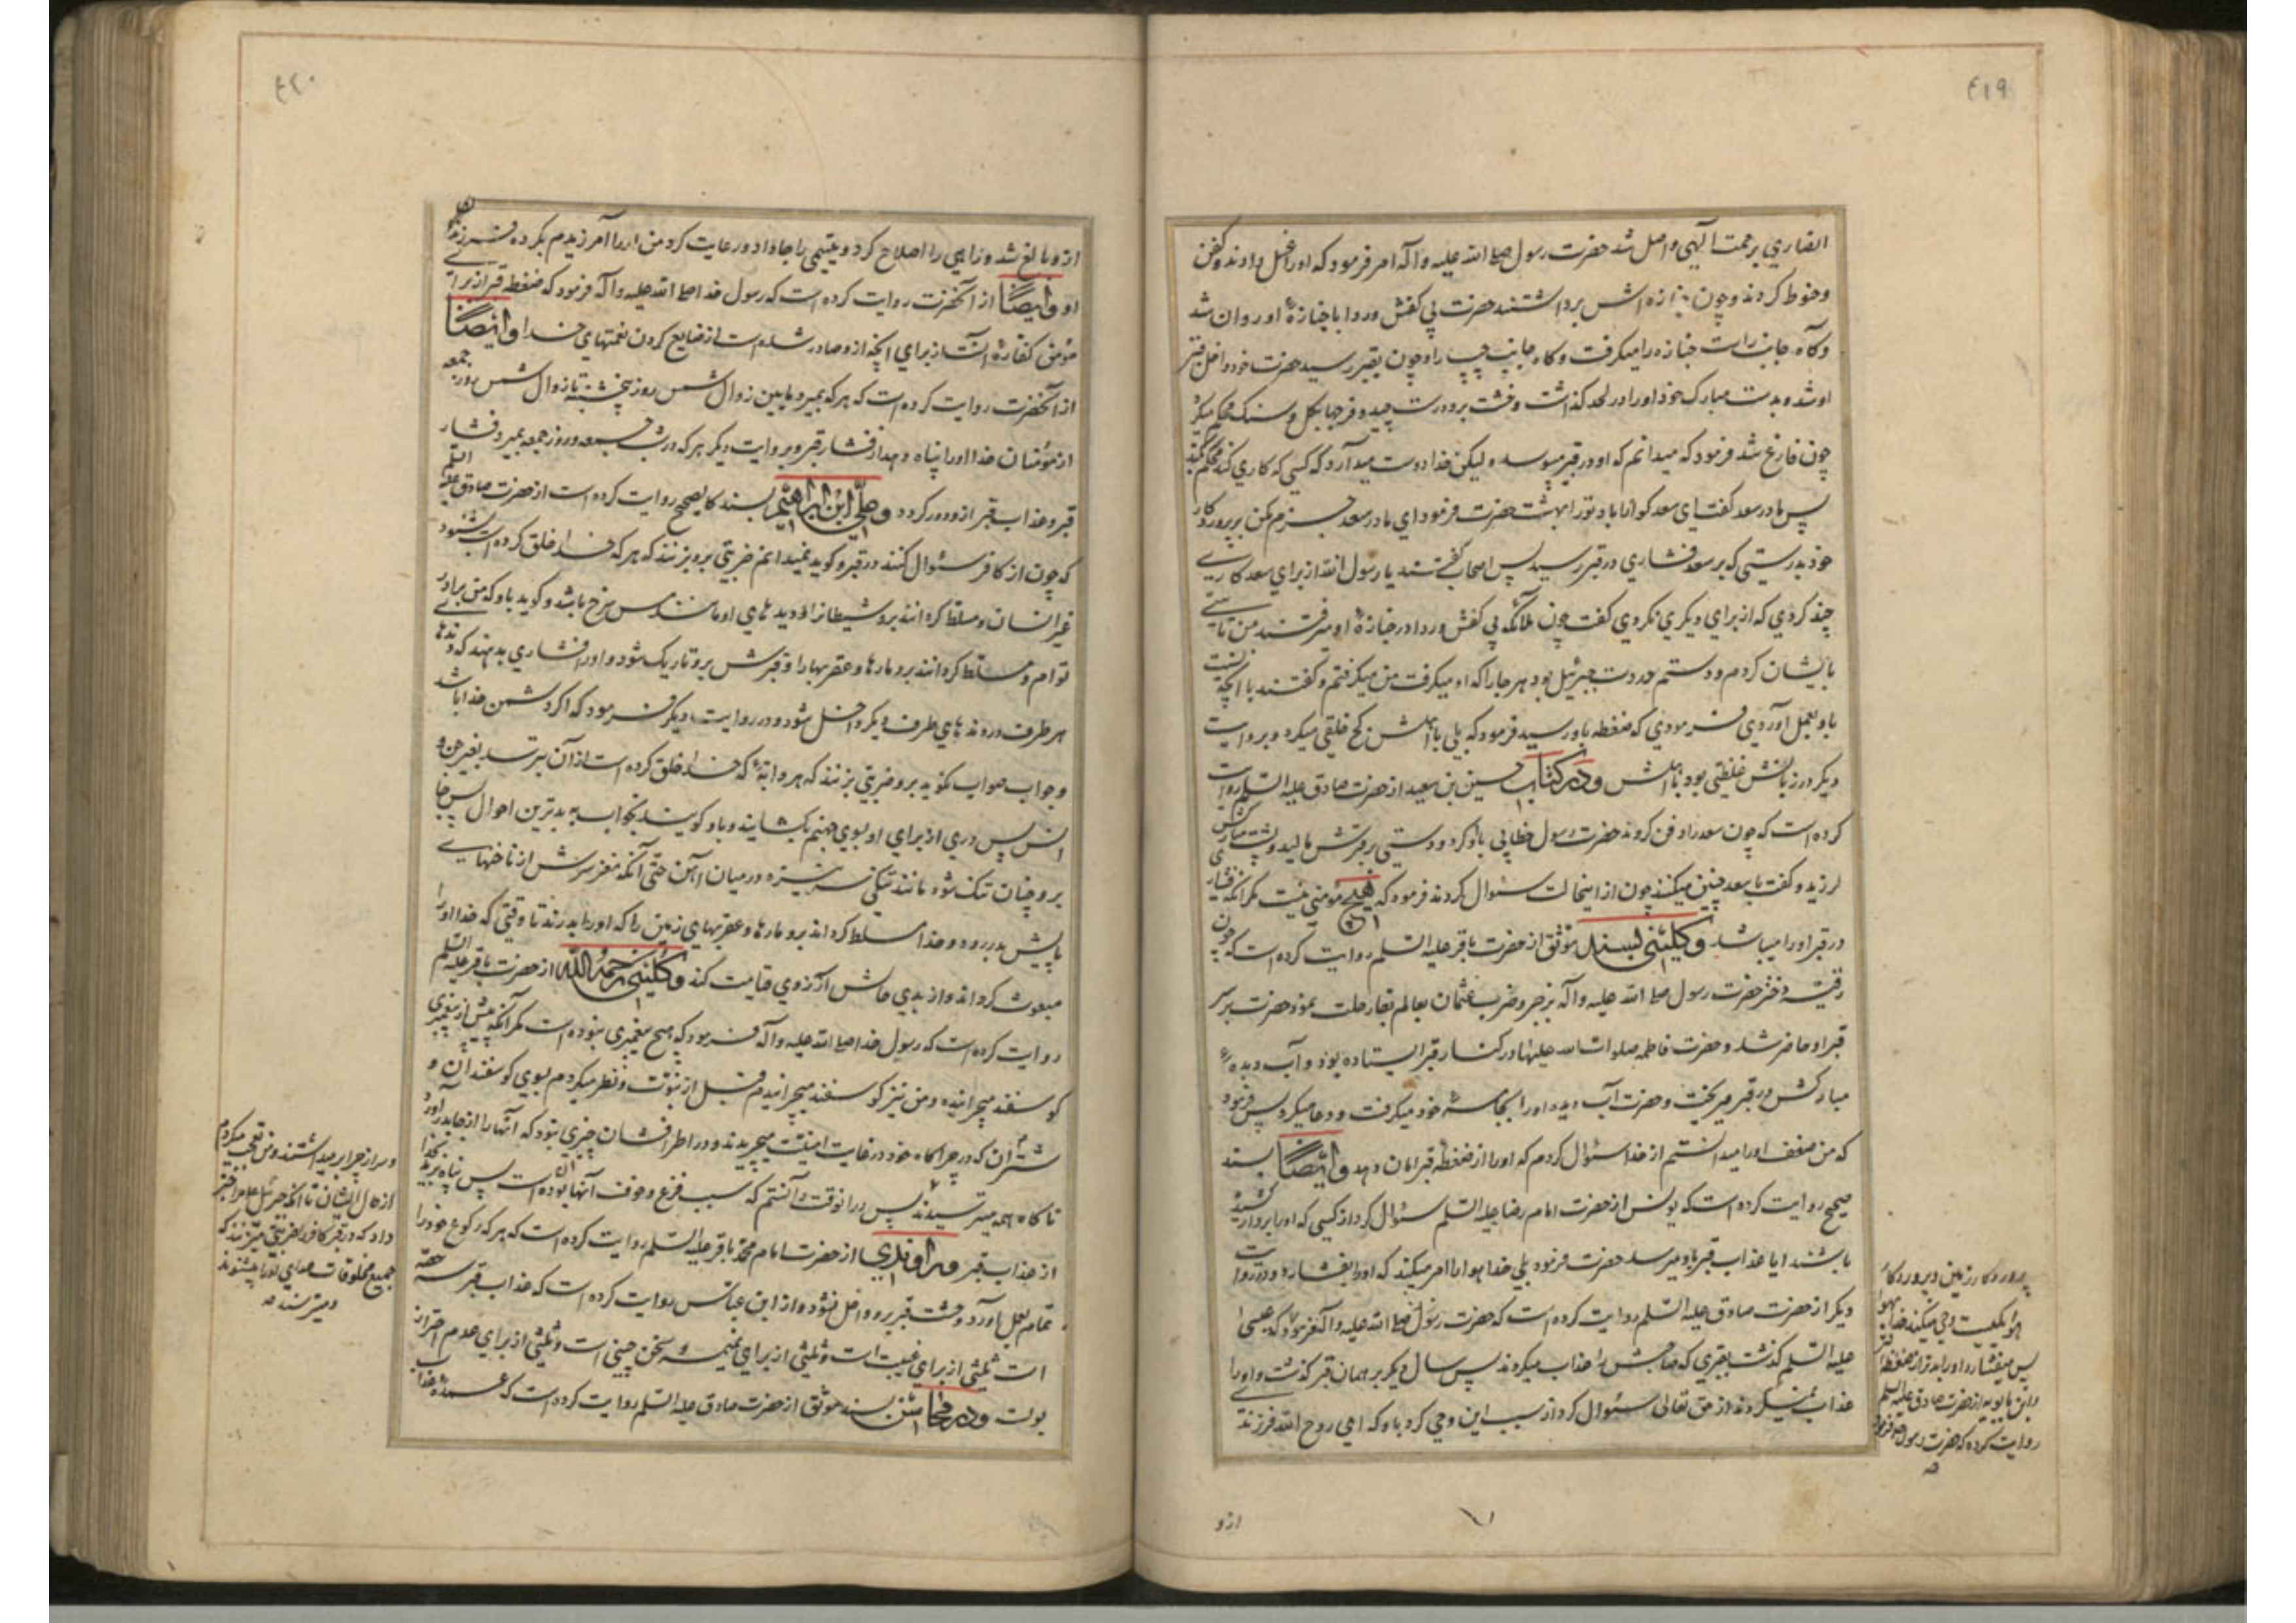 ٤١٩
انصاري برحمت آلهي واصل شد حضرت رسول صلی الله عليه وآله امر فرمود که اورا غسل دادند وکفن
وحنوط کردند وچون جنازه اش برداشتند حضرت بي کفش وردا با جنازهٔ او روان شد
وکاه جانب راست جنازه را ميکرفت وکاه جانب چپ را وچون بقبر رسيد حضرت خود داخل قبر
او شد وبدست مبارک خود اورا در لحد کذاشت وخشت برو درست چيد وفرجها بکل وسنک محکم ميکرد
چون فارغ شد فرمود که ميدانم که او در قبر ميپوسد وليکن خدا دوست ميدارد که کسي که کاري کند محکم کند
پس مادر سعد کفت اي سعد کوارا باد تورا بهشت حضرت فرمود اي مادر سعد جزم مکن بر پروردکار
خود بدرستي که بر سعد فشاري در قبر رسيد پس اصحاب کفتند يا رسول الله از براي سعد کاري
چند کردي که از براي ديکري نکردي کفت چون ملائکه بي کفش وردا در جنازهٔ او ميرفتند من تأسي
بايشان کردم ودستم در دست جبرئيل بود هر جا را که او ميکرفت من ميکرفتم وکفتند با آنچه نسبت
باو بعمل آوردي فرمودي که ضغطه باو رسيد فرمود که بلي با اهلش کج خلقي ميکرد وبروايت
ديکر در زبانش غلظتي بود با اهلش ودر کتاب حسين بن سعيد از حضرت صادق عليه السلم روايت
کرده است که چون سعد را دفن کردند حضرت رسول خطابي باو کرد ودستي بر قبرش ماليد وپشت مبارکش
لرزيد وکفت با سعد چنين ميکنند چون از اينحالت سئوال کردند فرمود که هيچ مؤمني نيست مکر آنکه فشاري
در قبر اورا ميباشد وکليني بسند موثق از حضرت باقر عليه السلم روايت کرده است که چون
رقيه دختر حضرت رسول صلی الله عليه وآله بزجر وضرب عثمان بعالم بقا رحلت نمود حضرت بر سر
قبر او حاضر شد وحضرت فاطمه صلوات الله عليها در کنار قبر ايستاده بود وآب ديدهٔ
مبارکش در قبر ميريخت وحضرت آب ديده اورا بجامهٔ خود ميکرفت ودعا ميکرد پس فرمود
که من ضعف اورا ميدانستم از خدا سئوال کردم که اورا از ضغطهٔ قبر امان دهد وايضا بسند
صحيح روايت کرده است که يونس از حضرت امام رضا عليه السلم سئوال کرد از کسي که اورا بردار کشيده
باشند ايا عذاب قبر باو ميرسد حضرت فرمود بلي خدا هوا را امر ميکند که اورا بفشارد ودر روايت
ديکر از حضرت صادق عليه السلم روايت کرده است که حضرت رسول صلی الله عليه وآله فرمود که عيسی
عليه السلم کذشت بقبري که صاحبش را عذاب ميکردند پس سال ديکر بر همان قبر کذشت واورا
عذاب نميکردند از حق تعالی سئوال کرد از سبب اين وحي کرد باو که اي روح الله فرزند
پروردکار زمين وپروردکار
هوا يکيست وحي ميکند خدا بهوا
پس ميفشارد اورا بدتر از ضغطهٔ قبر
وابن بابويه از حضرت صادق عليه السلم
روايت کرده که حضرت رسول فرمود
ازو
٤٢٠
ازو بالغ شد وراهي را اصلاح کرد ويتيمي را جا داد ورعايت کرد من اورا آمرزيدم بکرده فرزند
او وايضا از آنحضرت روايت کرده است که رسول خدا صلی الله عليه وآله فرمود که ضغطه قبر از براي
مؤمن کفارهٔ آنست از براي آنچه ازو صادر شده است از ضايع کردن نعمتهاي خدا وايضا
از آنحضرت روايت کرده است که هر که بميرد مابين زوال شمس روز پنجشنبه تا زوال شمس روز جمعه
از مؤمنان خدا اورا پناه دهد از فشار قبر وبروايت ديکر هر که در شب جمعه وروز جمعه بميرد فشار
قبر وعذاب قبر ازو دور کردد وعلي ابن ابراهيم بسند کالصحيح روايت کرده است از حضرت صادق عليه السلم
که چون از کافر سئوال کنند در قبر وکويد نميدانم ضربتي برو بزنند که هر که خدا خلق کرده است بشنود
غير انسان ومسلط کردانند برو شيطانرا وديدهاي او مانند مس سرخ باشد وکويد باو که من برادر
توام ومسلط کردانند برو مارها وعقربها را وقبرش برو تاريک شود واورا فشاري بدهند که دندها
هر طرف در دندهاي طرف ديکر داخل شود ودر روايت ديکر فرمود که اکر دشمن خدا باشد
وجواب صواب نکويد برو ضربتي بزنند که هر دابهٔ که خدا خلق کرده است از آن بترسد بغير جن و
انس پس دري از براي او بسوي جهنم بکشايند وباو کويند بخواب به بدترين احوال پس جا
برو چنان تنک شود مانند تنکي سر نيزه در ميان آهن حتی آنکه مغز سرش از ناخنهاي
پايش بدر رود وخدا مسلط کرداند برو مارها وعقربهاي زمين را که اورا بدرند تا وقتي که خدا اورا
مبعوث کرداند واز بدي حالش آرزوي قيامت کند وکليني رحمه الله از حضرت باقر عليه السلم
روايت کرده است که رسول خدا صلی الله عليه وآله فرمود که هيچ پيغمبري نبوده است مکر آنکه پيش از پيغمبري
کوسفند ميچرانيده ومن نيز کوسفند ميچرانيدم قبل از نبوت ونظر ميکردم بسوي کوسفندان و
شتران که در چراکاه خود در غايت امنيت ميچريدند ودر اطرافشان چيزي نبود که آنها را از جا بدر آورد
ناکاه همه ميترسيدند پس در آنوقت دانستم که سبب فزع وخوف آنها آن بوده است پس پناه بريد بخدا
از عذاب قبر وراوندي از حضرت امام محمد باقر عليه السلم روايت کرده است که هر که رکوع خود را
تمام بعمل آورد وحشت قبر برو داخل نشود واز ابن عباس روايت کرده است که عذاب قبر سه حصه
است ثلثي از براي غيبت است وثلثي از براي نميمه وسخن چيني است وثلثي از براي عدم احتراز
بولست ودر محاسن بسند موثق از حضرت صادق عليه السلم روايت کرده است که عمدهٔ عذاب
وسر از چرا برميداشتند ومن تعجب ميکردم
از حال ايشان تا آنکه جبرئيل مرا خبر
داد که در قبر کافر را ضربتي ميزنند که
جميع مخلوقات صداي اورا ميشنوند
وميترسند